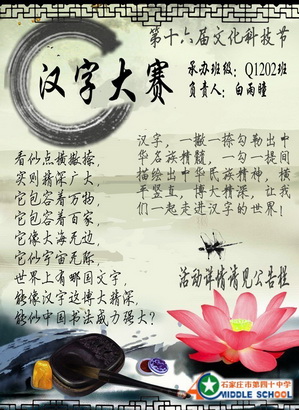 第十六届文化科技节
汉字大赛
承办班级：Q1202班
负责人：白雨曈
汉字，一撇一捺勾勒出中
华名族精髓，一勾一提间
描绘出中华民族精神，横
平竖直，博大精深，让我
们一起走进汉字的世界！
看似点横撇捺，
实则精深广大，
它包容着万物，
它包容着百家，
它像大海无边，
它似宇宙无际，
世界上有哪国文字，
能像汉字这博大精深，
能似中国书法威力强大？
活动详情请见公告栏
石家庄市第四十中学
MIDDLE SCHOOL